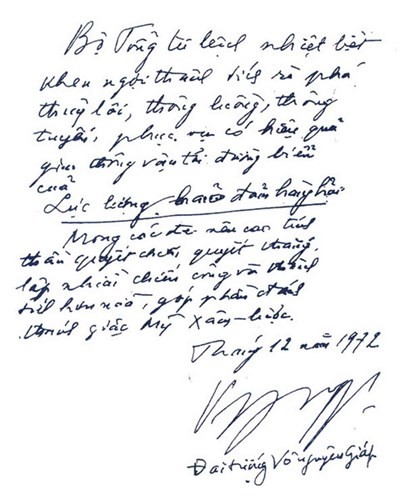 Bộ Tổng tư lệnh nhiệt liệt
khen ngợi thành tích rà phá
thuỷ lôi, thông luồng, thông
tuyến, phục vụ có hiệu quả
giao thông vận tải đường biển
của
Lực lượng bảo đảm hàng hải
Mong các đ/c nêu cao tinh
thần quyết chiến, quyết thắng,
lập nhiều chiến công và thành
tích hơn nữa, góp phần đánh
thắng giặc Mỹ xâm-lược.
Tháng 12 năm 1972
Đại tướng Võ Nguyên Giáp